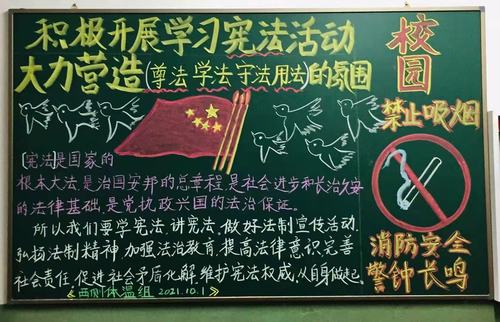 积极开展学习宪法活动
大力营造(尊法 学法 守法 用法)的氛围
宪法是国家的
根本大法,是治国安邦的总章程,是社会进步和长治久安
的法律基础,是党执政兴国的法治保证。
所以我们要学宪法、讲宪法、做好法制宣传活动,
弘扬法制精神,加强法治教育,提高法律意识完善
社会责任,促进社会矛盾化解,维护宪法权威,从自身做起。
西侧体温组 2021.10.1
校园
禁止吸烟
消防安全
警钟长鸣